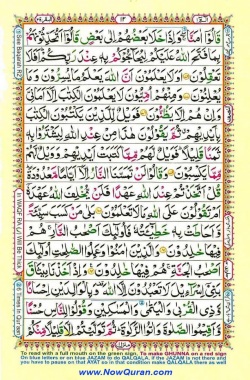 الٓمّٓ ١
١٣
البقرة ٢
قَالُوۡۤا اٰمَنَّا ۚ وَاِذَا خَلَا بَعۡضُهُمۡ اِلٰى بَعۡضٍ قَالُوۡۤا اَتُحَدِّثُوۡنَهُمۡ
بِمَا فَتَحَ اللّٰهُ عَلَيۡكُمۡ لِيُحَآجُّوۡكُمۡ بِهٖ عِنۡدَ رَبِّكُمۡ ؕ اَفَلَا
تَعۡقِلُوۡنَ اَوَلَا يَعۡلَمُوۡنَ اَنَّ اللّٰهَ يَعۡلَمُ مَا يُسِرُّوۡنَ وَمَا
يُعۡلِنُوۡنَ وَمِنۡهُمۡ اُمِّيُّوۡنَ لَا يَعۡلَمُوۡنَ الۡكِتٰبَ اِلَّاۤ اَمَانِىَّ
وَاِنۡ هُمۡ اِلَّا يَظُنُّوۡنَ فَوَيۡلٌ لِّلَّذِيۡنَ يَكۡتُبُوۡنَ الۡكِتٰبَ
بِاَيۡدِيۡهِمۡ ثُمَّ يَقُوۡلُوۡنَ هٰذَا مِنۡ عِنۡدِ اللّٰهِ لِيَشۡتَرُوۡا بِهٖ
ثَمَنًا قَلِيۡلًا ؕ فَوَيۡلٌ لَّهُمۡ مِّمَّا كَتَبَتۡ اَيۡدِيۡهِمۡ وَوَيۡلٌ لَّهُمۡ
مِّمَّا يَكۡسِبُوۡنَ وَقَالُوۡا لَنۡ تَمَسَّنَا النَّارُ اِلَّاۤ اَيَّامًا مَّعۡدُوۡدَةً ؕ
قُلۡ اَتَّخَذۡتُمۡ عِنۡدَ اللّٰهِ عَهۡدًا فَلَنۡ يُّخۡلِفَ اللّٰهُ عَهۡدَهٗۤ
اَمۡ تَقُوۡلُوۡنَ عَلَى اللّٰهِ مَا لَا تَعۡلَمُوۡنَ بَلٰى مَنۡ كَسَبَ سَيِّئَةً
وَّاَحَاطَتۡ بِهٖ خَطِيۡٓــَٔتُهٗ فَاُولٰٓئِكَ اَصۡحٰبُ النَّارِ ۚ هُمۡ
فِيۡهَا خٰلِدُوۡنَ وَالَّذِيۡنَ اٰمَنُوۡا وَعَمِلُوا الصّٰلِحٰتِ اُولٰٓئِكَ
اَصۡحٰبُ الۡجَنَّةِ ۚ هُمۡ فِيۡهَا خٰلِدُوۡنَ وَاِذۡ اَخَذۡنَا مِيۡثَاقَ
وَّذِى الۡقُرۡبٰى وَالۡيَتٰمٰى وَالۡمَسٰکِيۡنِ وَقُوۡلُوۡا لِلنَّاسِ حُسۡنًا
وَّاَقِيۡمُوا الصَّلٰوةَ وَاٰتُوا الزَّکٰوةَ ؕ ثُمَّ تَوَلَّيۡتُمۡ اِلَّا قَلِيۡلًا مِّنۡکُمۡ
To read with a full mouth on the green sign, To make GHUNNA on a red sign
On blue letters or on blue JAZAM to do QALQALA, if the JAZAM is not there and
you have to pause on that AYAT so in that condition make QALQALA there as well
www.NowQuran.com